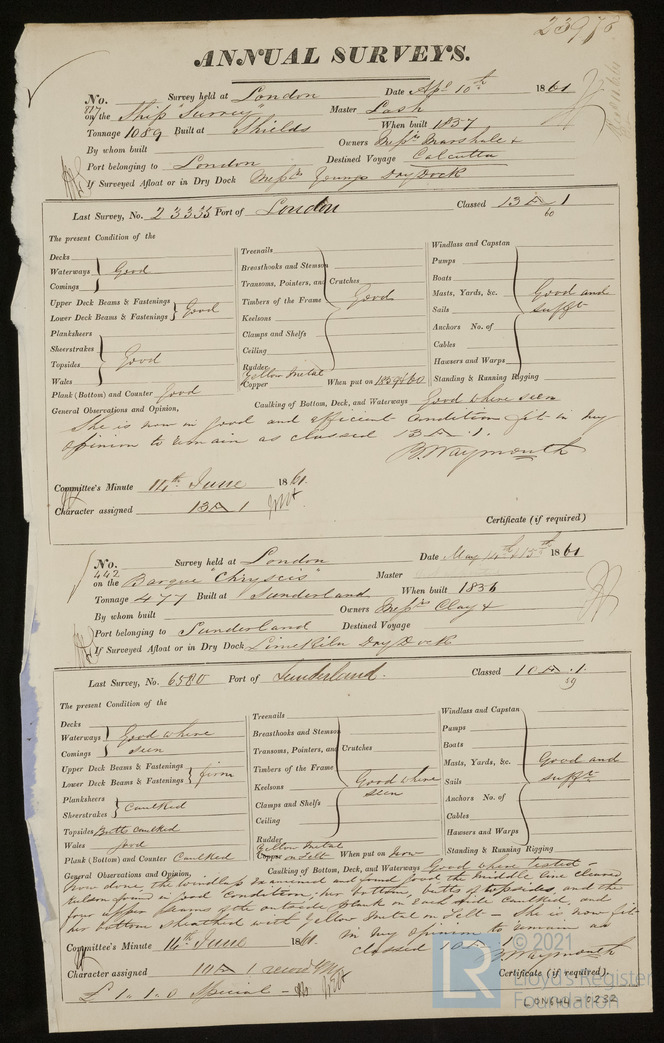 23976
ANNUAL SURVEYS.
No. 417 Survey held at London Date Apl 10th 1861
on the Ship "Surrey" Master Lash
Tonnage 1089 Built at Shields When built 1837
By whom built Owners Messrs Marshall &
Port belonging to London Destined Voyage Calcutta
If Surveyed Afloat or in Dry Dock Messrs Youngs Dry Dock
Last Survey, No. 23335 Port of London Classed 13 A 1
60
The present Condition of the
Decks
Waterways Good
Comings
Upper Deck Beams & Fastenings
Lower Deck Beams & Fastenings Good
Planksheers
Sheerstrakes
Topsides Good
Wales
Plank (Bottom) and Counter Good
Treenails
Breasthooks and Stemson
Transoms, Pointers, and Crutches
Timbers of the Frame Good
Keelsons
Clamps and Shelfs
Ceiling
Rudder
Yellow Metal
Copper When put on 1859 & 60
Windlass and Capstan
Pumps
Boats
Masts, Yards, &c. Good and
Sails sufft
Anchors No. of
Cables
Hawsers and Warps
Standing & Running Rigging
General Observations and Opinion, Caulking of Bottom, Deck, and Waterways Good where seen
She is now in good and efficient condition & fit in my
opinion to remain as classed 13 A 1.
B. Waymouth
Committee's Minute 14th June 1861.
Character assigned 13 A 1
Certificate (if required)
No. 442 Survey held at London Date May 14th & 15th 1861
on the Barque "Chryseis" Master
Tonnage 477 Built at Sunderland When built 1836
By whom built Owners Messrs Clay &
Port belonging to Sunderland Destined Voyage
If Surveyed Afloat or in Dry Dock Limekiln Dry Dock
Last Survey, No. 6580 Port of Sunderland. Classed 10 A 1.
59
The present Condition of the
Decks
Waterways Good where
Comings seen
Upper Deck Beams & Fastenings
Lower Deck Beams & Fastenings firm
Planksheers
Sheerstrakes Caulked
Topsides Butts caulked
Wales good
Plank (Bottom) and Counter Caulked
Treenails
Breasthooks and Stemson
Transoms, Pointers, and Crutches
Timbers of the Frame
Keelsons Good where
Clamps and Shelfs seen
Ceiling
Rudder
Yellow Metal
Copper on Felt When put on Now
Windlass and Capstan
Pumps
Boats
Masts, Yards, &c. Good and
Sails sufft
Anchors No. of
Cables
Hawsers and Warps
Standing & Running Rigging
General Observations and Opinion, Caulking of Bottom, Deck, and Waterways Good where tested -
Now done the windlass examined and found good the middle line cleared,
keelson found in good condition; her bottom, butts of topsides, and the
four upper seams of the outside plank on each side caulked, and
her bottom sheathed with Yellow Metal on Felt - She is now fit
in my opinion to remain as
classed 10 A 1
B. Waymouth
Committee's Minute 14th June 1861.
Character assigned 10 A 1
Certificate (if required).
£1.1.0 Special -
LR © 2021
Lloyd's Register
Foundation
LON644-0232